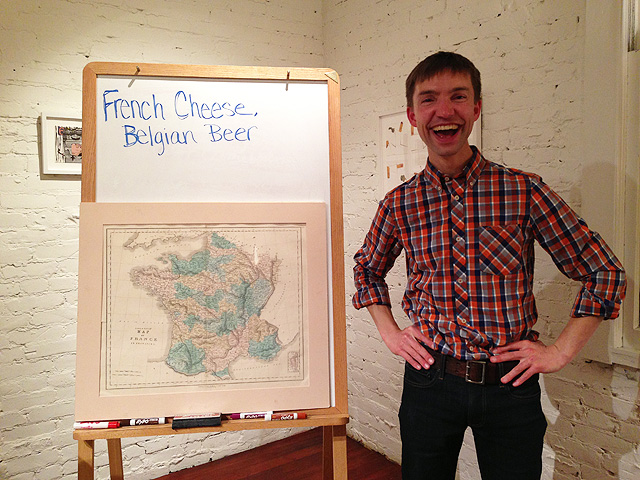 French Cheese,
Belgian Beer
MAP
FRANCE
EXPO
EXPO